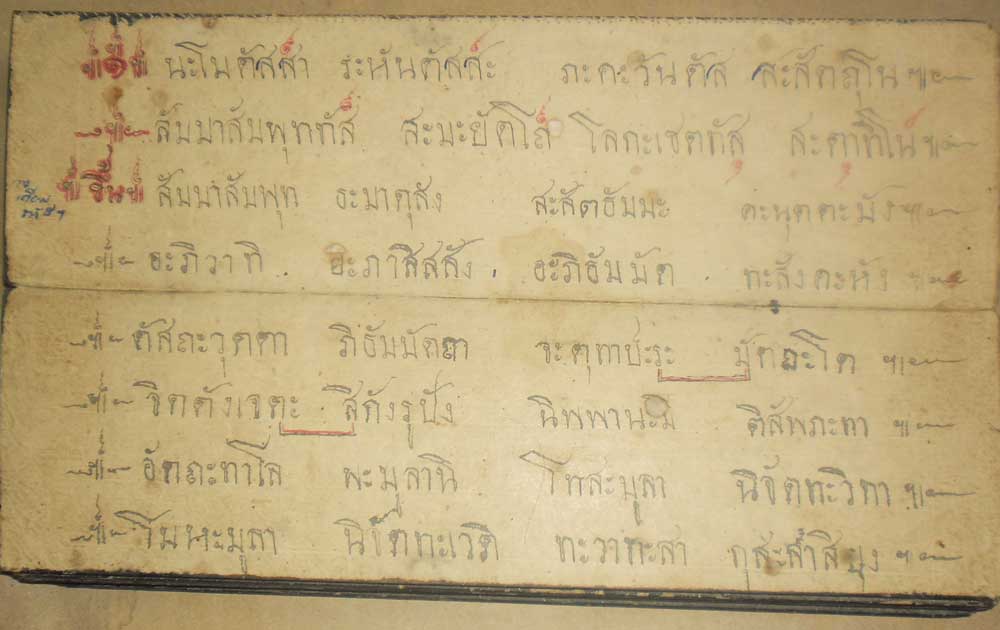 นะโมตัสส์สา ระหันตัสส์สะ ภะคะวันตัส สะสัตถุโน
สัมมาสัมพุททัส์ สะมะยัตโถ์ โลกะเชตทัสฺ สะตาทิโน์
สัมมาสัมพุท ธะมาตุลัง สะสัตธัมมะ คะนุตตะมัง
อะภิวาทิ อะภาสิสสัง อะภิธัมมัต ทะสังคะหัง
ตัสถะวุตตา ภิธัมมัตถา จะตุทาประระ มัตถะโต
จิตตังเจตะ สิกังรูปัง นิพพานะมิ ติสัพภะทา
อัตถะทาโล พะมูลานิ โทสะมูลา นิจัตทะวิทา
โมหะมูลา นิจัตทะเวติ ทะวาทะสา กุสะลำสิยุง